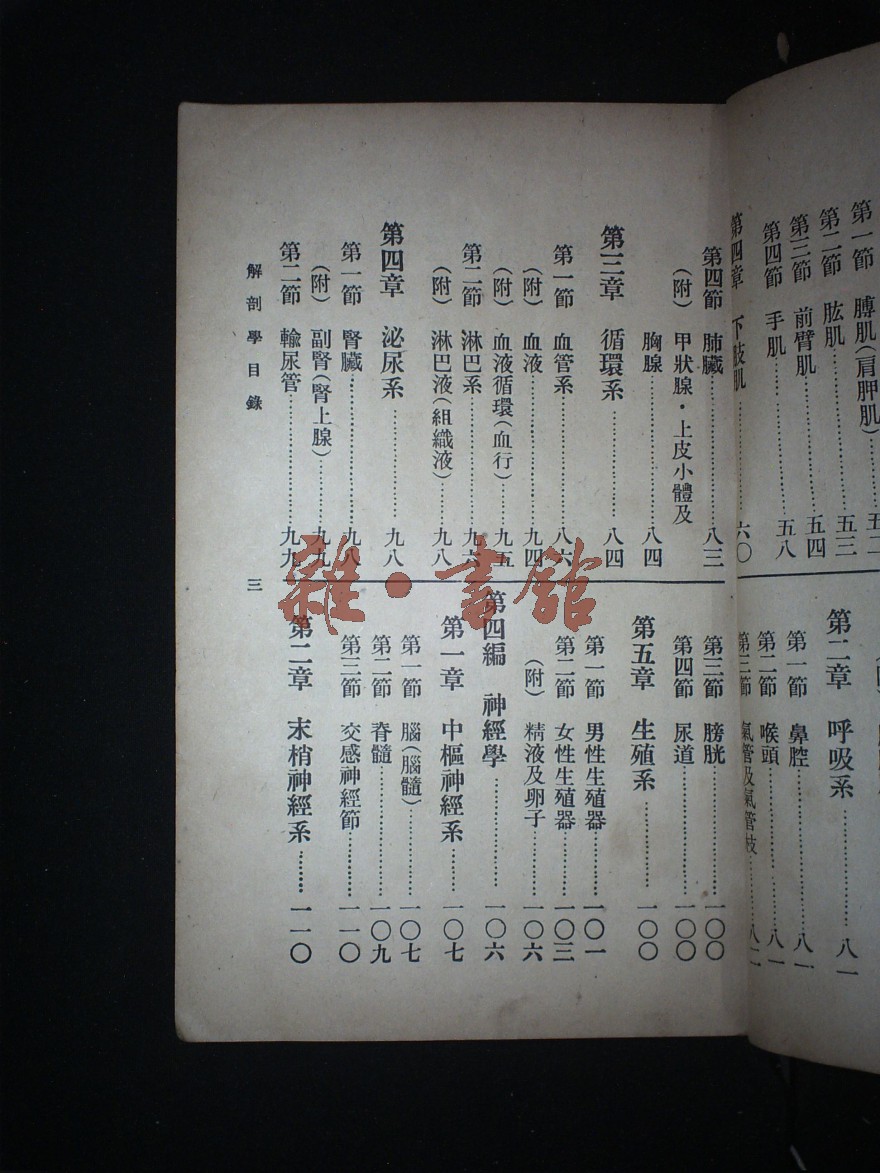 第一節 膊肌(肩胛肌)………五二
第二節 肱肌………五三
第三節 前臂肌………五四
第四節 手肌………五八
第四章 下肢肌………六〇
第二章 呼吸系………八一
第一節 鼻腔………八一
第二節 喉頭………八一
第三節 氣管及氣管枝………八二
第四節 肺臟………八三
(附) 甲狀腺・上皮小體及
胸腺………八四
第三章 循環系………八四
第一節 血管系………八六
(附) 血液………九四
(附) 血液循環(血行)………九五
第二節 淋巴系………九六
(附) 淋巴液(組織液)………九八
第四章 泌尿系………九八
第一節 腎臟………九八
(附) 副腎(腎上腺)………九九
第二節 輸尿管………九九
第三節 膀胱………一〇〇
第四節 尿道………一〇〇
第五章 生殖系………一〇〇
第一節 男性生殖器………一〇一
第二節 女性生殖器………一〇三
(附) 精液及卵子………一〇六
第四編 神經學………一〇六
第一章 中樞神經系………一〇七
第一節 腦(腦髓)………一〇七
第二節 脊髓………一〇九
第三節 交感神經節………一一〇
第二章 末梢神經系………一一〇
解剖學目錄
三
雜・書館